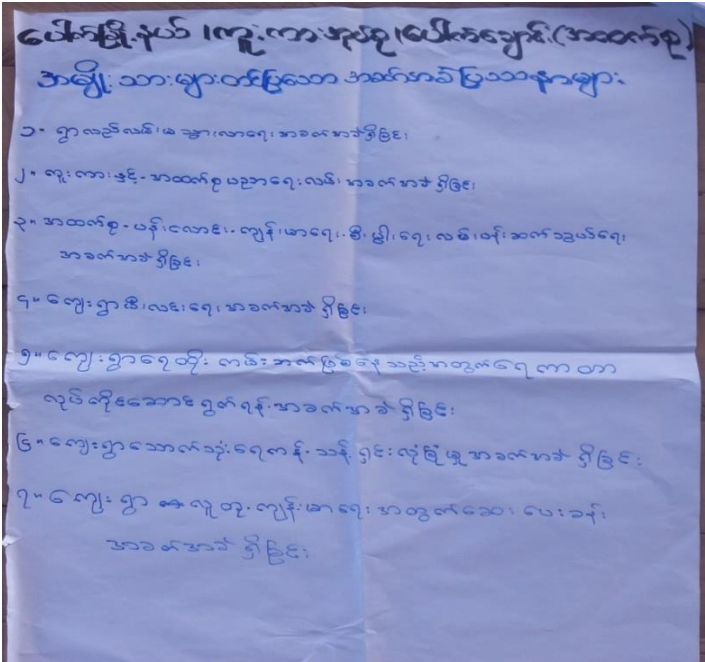 ပေါက်မြို့နယ်၊ကူးကားအုပ်စု၊ပေါက်ချောင်း(အထက်စု)
အမျိုးသားများတင်ပြသော အခက်အခဲပြဿနာများ
၁။ ရွာလည်လမ်းမ သွားလာရေး အခက်အခဲရှိခြင်း၊
၂။ ကူးကားနှင့်-အထက်စု ပညာရေးလမ်း အခက်အခဲ ရှိခြင်း၊
၃။ အထက်စု- ပန်းလောင်း-ကျန်းမာရေး-စီးပွါးရေး လမ်းပန်းဆက်သွယ်ရေး
အခက်အခဲ ရှိခြင်း၊
၄။ ကျေးရွာမီးလင်းရေး အခက်အခဲ ရှိခြင်း၊
၅။ ကျေးရွာရေတိုး ကမ်းဘက်ဖြစ်နေသည့်အတွက်ရေကာတာ
လုပ်ကိုင်ဆောင်ရွက်ရန် အခက်အခဲ ရှိခြင်း၊
၆။ ကျေးရွာသောက်သုံးရေကန်-သန့်ရှင်းလုံခြုံမှု အခက်အခဲ ရှိခြင်း၊
၇။ ကျေးရွာ လူထု-ကျန်းမာရေးအတွက်ဆေးပေးခန်း
အခက်အခဲ ရှိခြင်း၊